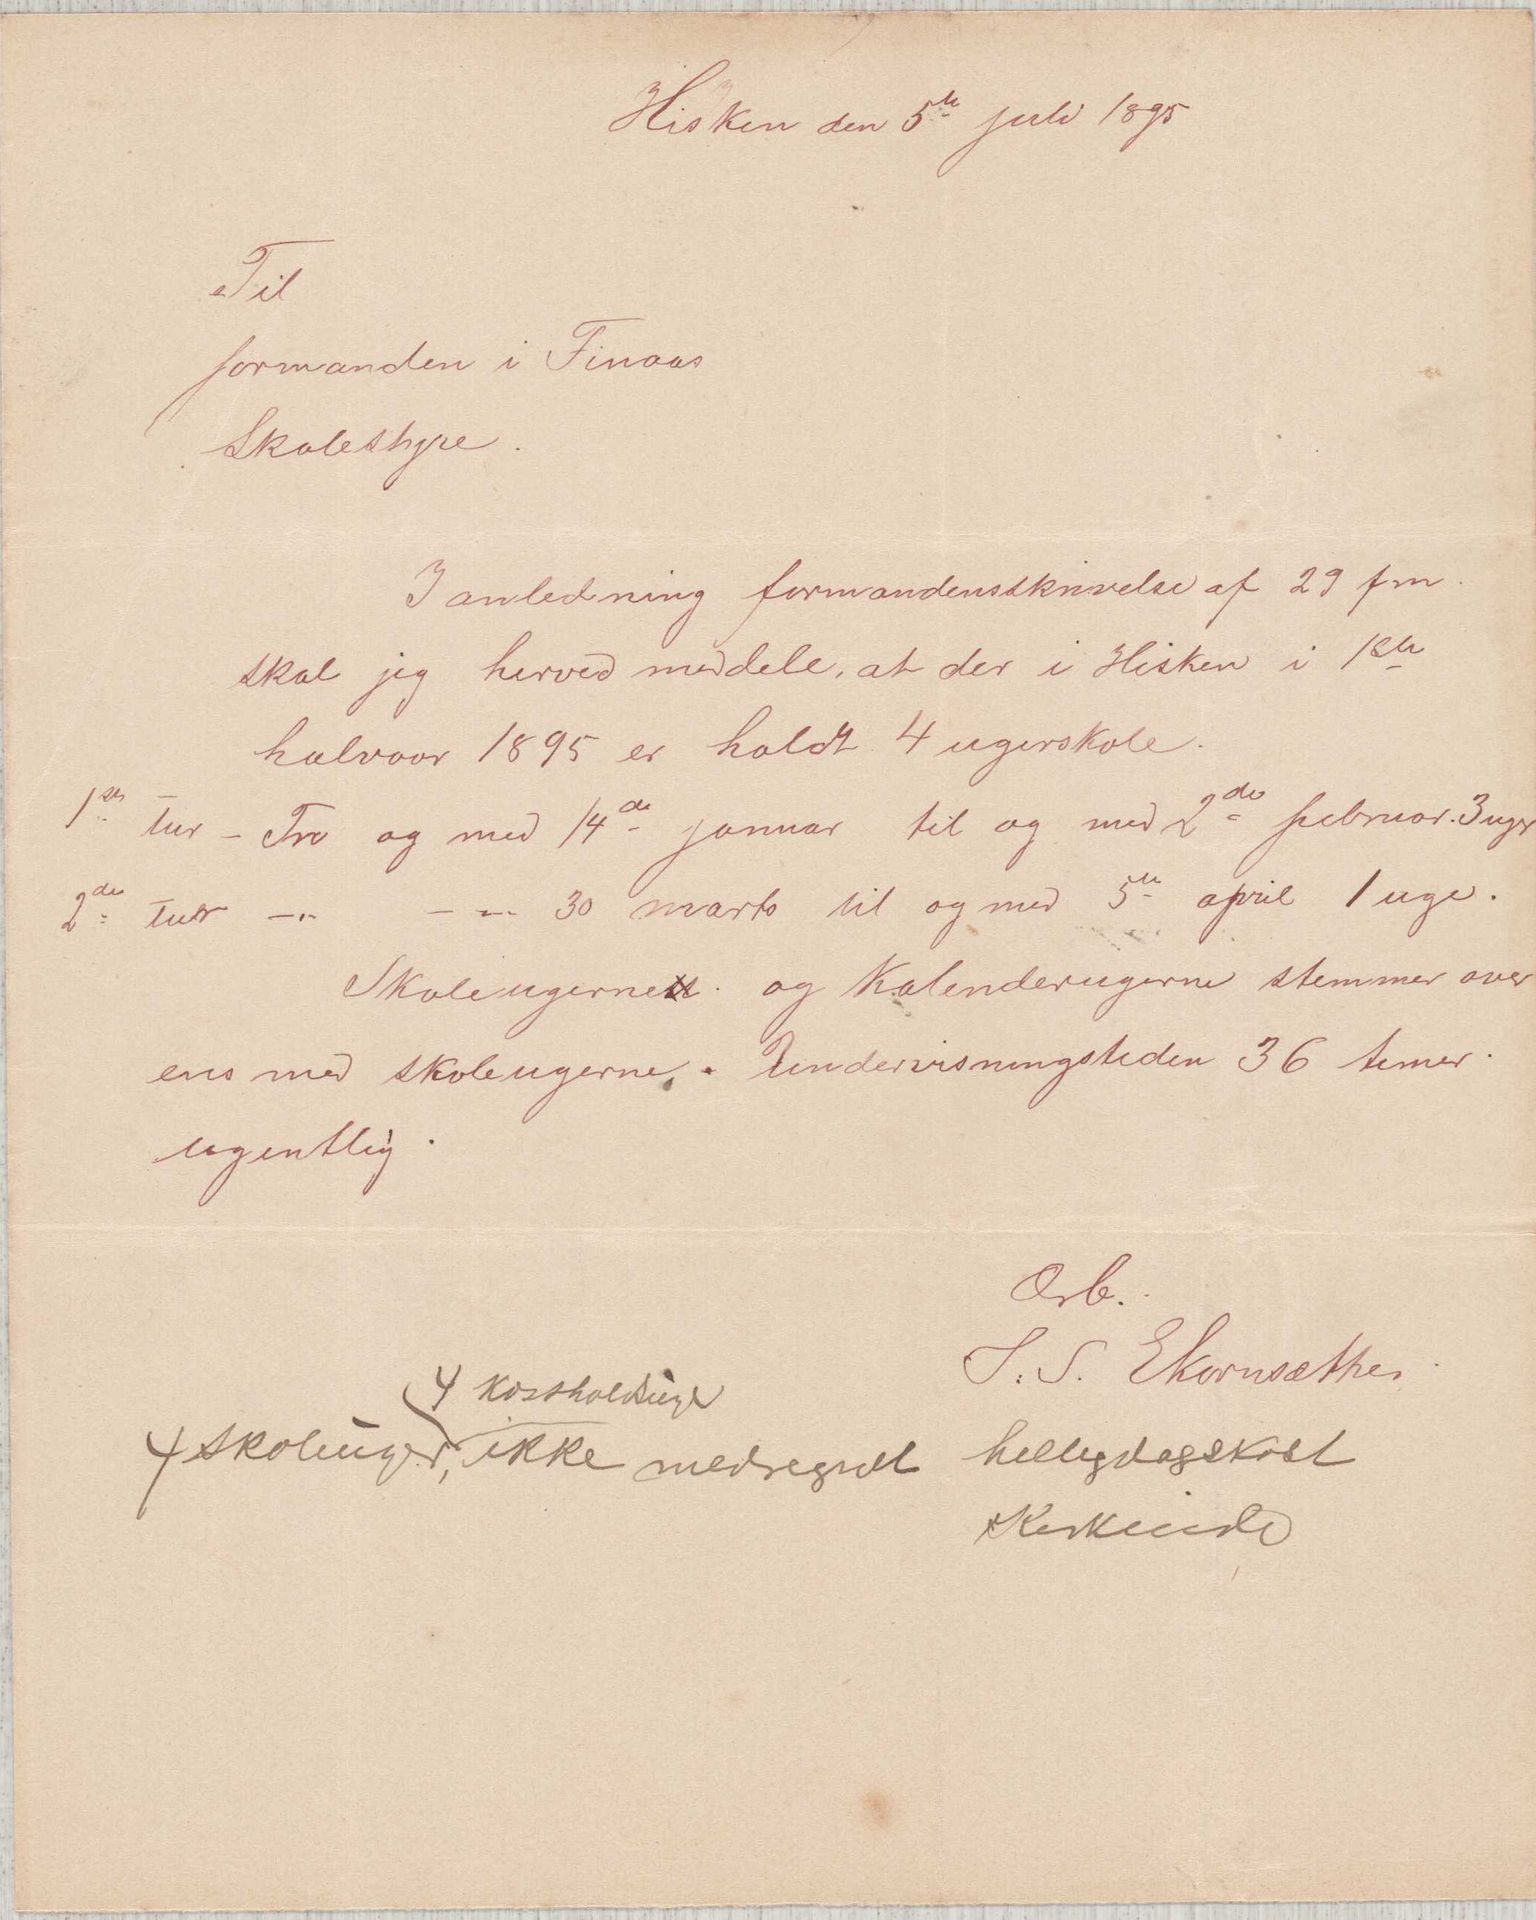 Hisken den 5te juli 1895
Til
formanden i Finaas
Skolestyre.
I anledning formandensskrivelse af 29 f m.
skal jeg herved meddele, at der i Hisken i 1ste
halvaar 1895 er holdt 4 ugerskole.
1ste tur – Fra og med 14de januar til og med 2den februar. 3 uger
2den tur – „ – „ – 30 marts til og med 5te april 1 uge.
Skoleugerne og Kalenderugerne stemmer over
ens med skoleugerne. Undervisningstiden 36 timer
ugentlig.
Ærb.
S. S. Ekornsæther
4 kostholdsuger
4 skoleuger, ikke medregnet helligdagskost